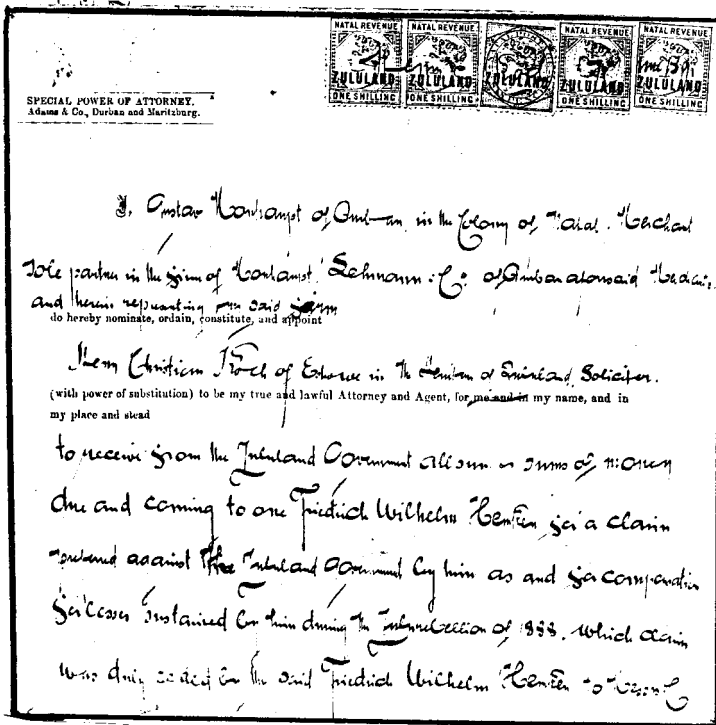 NATAL REVENUE NATAL REVENUE NATAL REVENUE NATAL REVENUE
ZULULAND ZULULAND ZULULAND ZULULAND ZULULAND
ONE SHILLING ONE SHILLING ONE SHILLING ONE SHILLING
SPECIAL POWER OF ATTORNEY.
Adams & Co., Durban and Maritzburg.
I, Gustav of Durban in the Colony of Natal, Merchant
Sole partner in the firm of Lehmann & Co of Durban aforesaid
and herein representing my said firm
do hereby nominate, ordain, constitute, and appoint
Christian of Eshowe in the of Zululand Solicitor.
(with power of substitution) to be my true and lawful Attorney and Agent, for me and in my name, and in
my place and stead
to receive from the Zululand Government all sum or sums of money
due and coming to one Friedrich Wilhelm for a claim
against the Zululand Government by him as and for compensation
for losses sustained by him during the of 1888, which claim
was duly ceded by the said Friedrich Wilhelm to